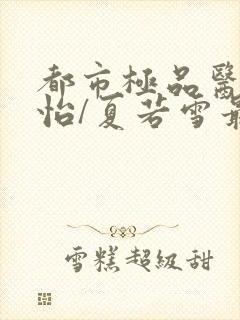 都市極品醫
怡/夏若雪最
雪糕超級甜